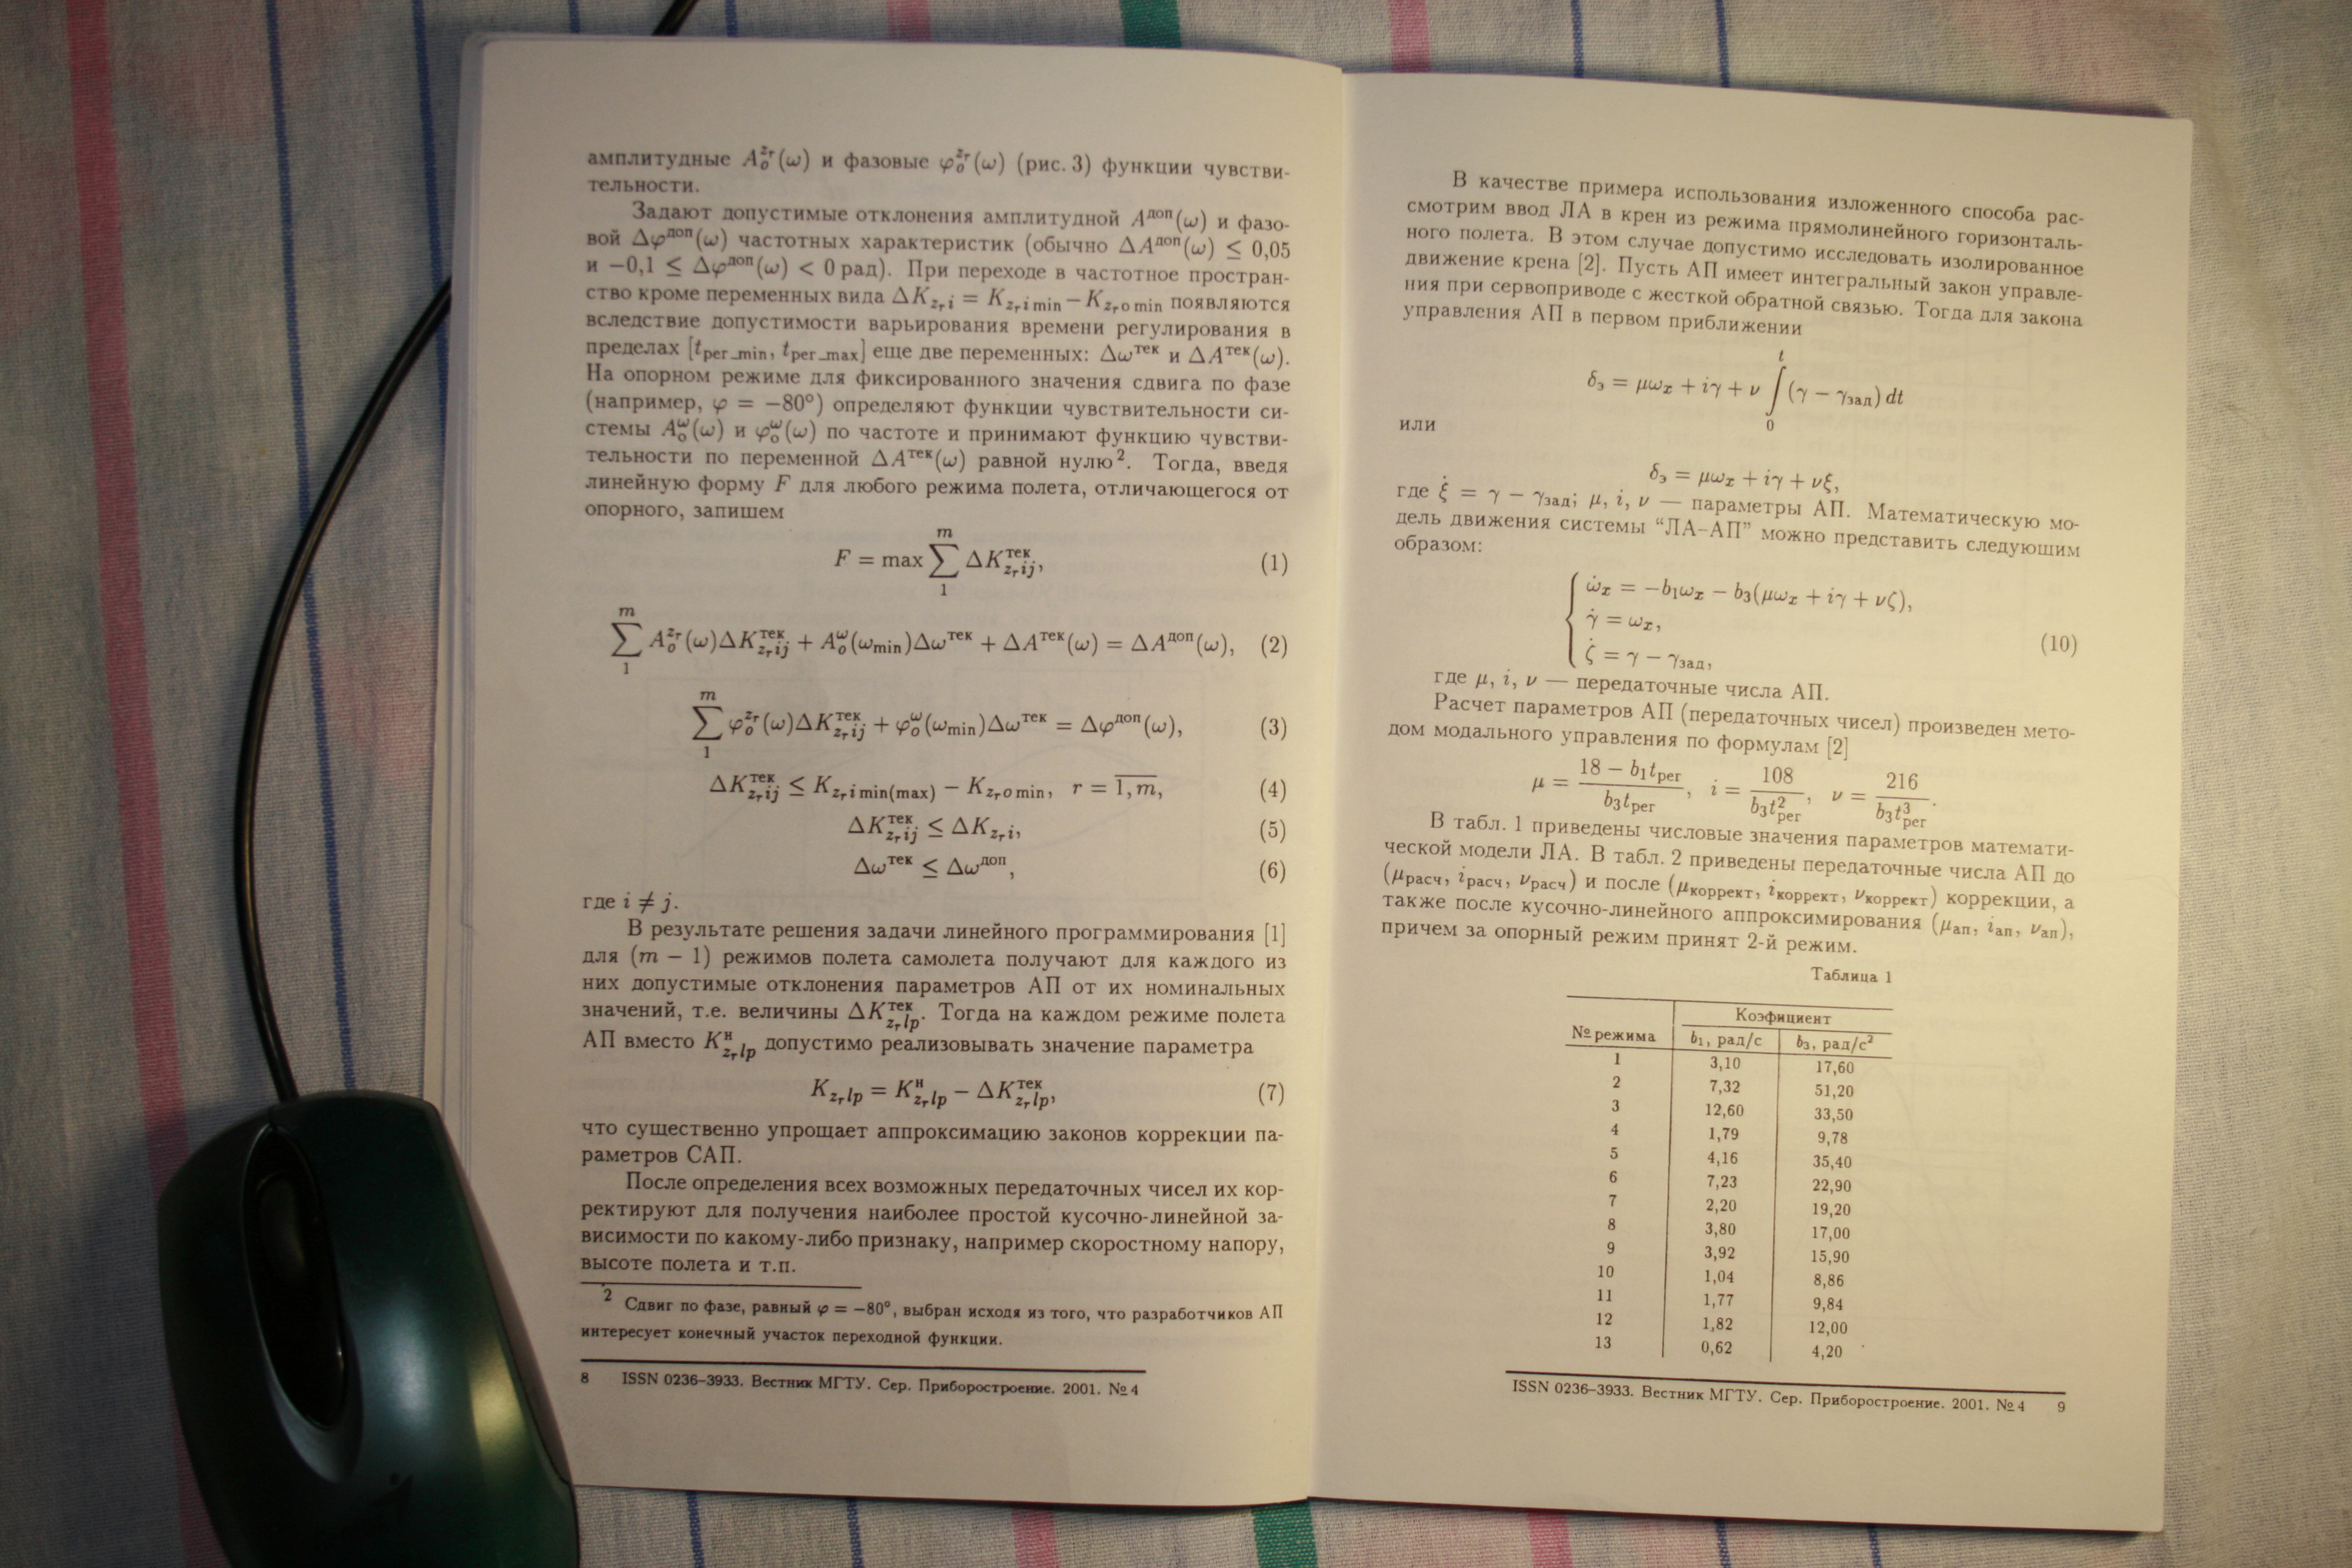 амплитудные A_o^{z_r}(ω) и фазовые φ_o^{z_r}(ω) (рис. 3) функции чувстви-
тельности.
Задают допустимые отклонения амплитудной A^{доп}(ω) и фазо-
вой Δφ^{доп}(ω) частотных характеристик (обычно ΔA^{доп}(ω) ≤ 0,05
и −0,1 ≤ Δφ^{доп}(ω) < 0 рад). При переходе в частотное простран-
ство кроме переменных вида ΔK_{z_r i} = K_{z_r i min} − K_{z_r o min} появляются
вследствие допустимости варьирования времени регулирования в
пределах [t_{рег_min}, t_{рег_max}] еще две переменных: Δω^{тек} и ΔA^{тек}(ω).
На опорном режиме для фиксированного значения сдвига по фазе
(например, φ = −80°) определяют функции чувствительности си-
стемы A_o^ω(ω) и φ_o^ω(ω) по частоте и принимают функцию чувстви-
тельности по переменной ΔA^{тек}(ω) равной нулю². Тогда, введя
линейную форму F для любого режима полета, отличающегося от
опорного, запишем
F = max ∑_1^m ΔK_{z_r ij}^{тек}, (1)
∑_1^m A_o^{z_r}(ω)ΔK_{z_r ij}^{тек} + A_o^ω(ω_{min})Δω^{тек} + ΔA^{тек}(ω) = ΔA^{доп}(ω), (2)
∑_1^m φ_o^{z_r}(ω)ΔK_{z_r ij}^{тек} + φ_o^ω(ω_{min})Δω^{тек} = Δφ^{доп}(ω), (3)
ΔK_{z_r ij}^{тек} ≤ K_{z_r i min(max)} − K_{z_r o min}, r = \overline{1, m}, (4)
ΔK_{z_r ij}^{тек} ≤ ΔK_{z_r i}, (5)
Δω^{тек} ≤ Δω^{доп}, (6)
где i ≠ j.
В результате решения задачи линейного программирования [1]
для (m − 1) режимов полета самолета получают для каждого из
них допустимые отклонения параметров АП от их номинальных
значений, т.е. величины ΔK_{z_r lp}^{тек}. Тогда на каждом режиме полета
АП вместо K_{z_r lp}^н допустимо реализовывать значение параметра
K_{z_r lp} = K_{z_r lp}^н − ΔK_{z_r lp}^{тек}, (7)
что существенно упрощает аппроксимацию законов коррекции па-
раметров САП.
После определения всех возможных передаточных чисел их кор-
ректируют для получения наиболее простой кусочно-линейной за-
висимости по какому-либо признаку, например скоростному напору,
высоте полета и т.п.
² Сдвиг по фазе, равный φ = −80°, выбран исходя из того, что разработчиков АП
интересует конечный участок переходной функции.
8 ISSN 0236–3933. Вестник МГТУ. Сер. Приборостроение. 2001. № 4
В качестве примера использования изложенного способа рас-
смотрим ввод ЛА в крен из режима прямолинейного горизонталь-
ного полета. В этом случае допустимо исследовать изолированное
движение крена [2]. Пусть АП имеет интегральный закон управле-
ния при сервоприводе с жесткой обратной связью. Тогда для закона
управления АП в первом приближении
δ_э = μω_x + iγ + ν ∫_0^t (γ − γ_{зад}) dt
или
δ_э = μω_x + iγ + νξ,
где ξ̇ = γ − γ_{зад}; μ, i, ν — параметры АП. Математическую мо-
дель движения системы “ЛА–АП” можно представить следующим
образом:
ω̇_x = −b_1ω_x − b_3(μω_x + iγ + νζ),
γ̇ = ω_x, (10)
ζ̇ = γ − γ_{зад},
где μ, i, ν — передаточные числа АП.
Расчет параметров АП (передаточных чисел) произведен мето-
дом модального управления по формулам [2]
μ = (18 − b_1t_{рег})/(b_3t_{рег}), i = 108/(b_3t_{рег}^2), ν = 216/(b_3t_{рег}^3).
В табл. 1 приведены числовые значения параметров математи-
ческой модели ЛА. В табл. 2 приведены передаточные числа АП до
(μ_{расч}, i_{расч}, ν_{расч}) и после (μ_{коррект}, i_{коррект}, ν_{коррект}) коррекции, а
также после кусочно-линейного аппроксимирования (μ_{ап}, i_{ап}, ν_{ап}),
причем за опорный режим принят 2-й режим.
Таблица 1
№ режима Коэфициент
b_1, рад/с b_3, рад/с²
1 3,10 17,60
2 7,32 51,20
3 12,60 33,50
4 1,79 9,78
5 4,16 35,40
6 7,23 22,90
7 2,20 19,20
8 3,80 17,00
9 3,92 15,90
10 1,04 8,86
11 1,77 9,84
12 1,82 12,00
13 0,62 4,20
ISSN 0236–3933. Вестник МГТУ. Сер. Приборостроение. 2001. № 4 9